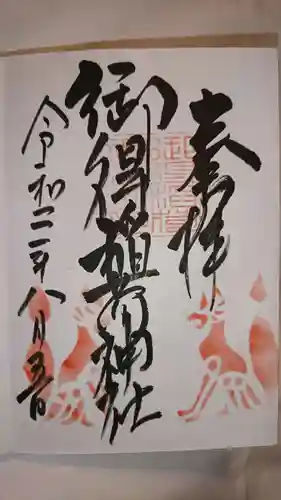 奉拝
御得稲荷神社
令和二年八月吉日